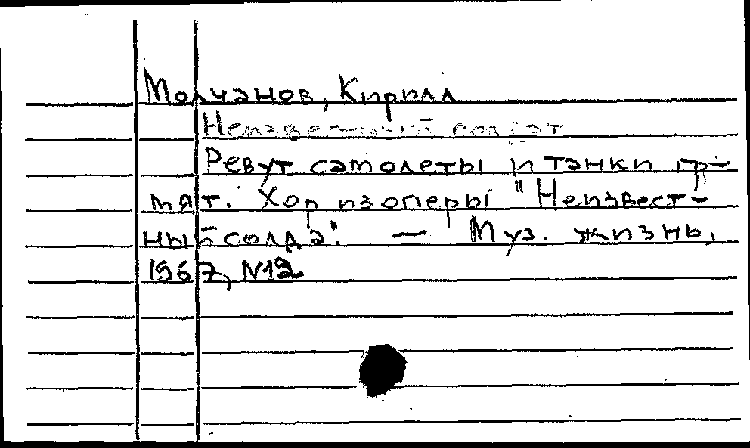 Молчанов, Кирилл
Неизвестный солдат
Ревут самолеты и танки гре-
мят. Хор из оперы "Неизвест-
ный солда". — Муз. жизнь,
1967, N12